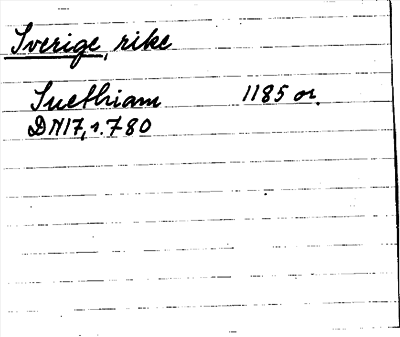 Sverige, rike
Suethiam 1185 or.
DN17, s. 780